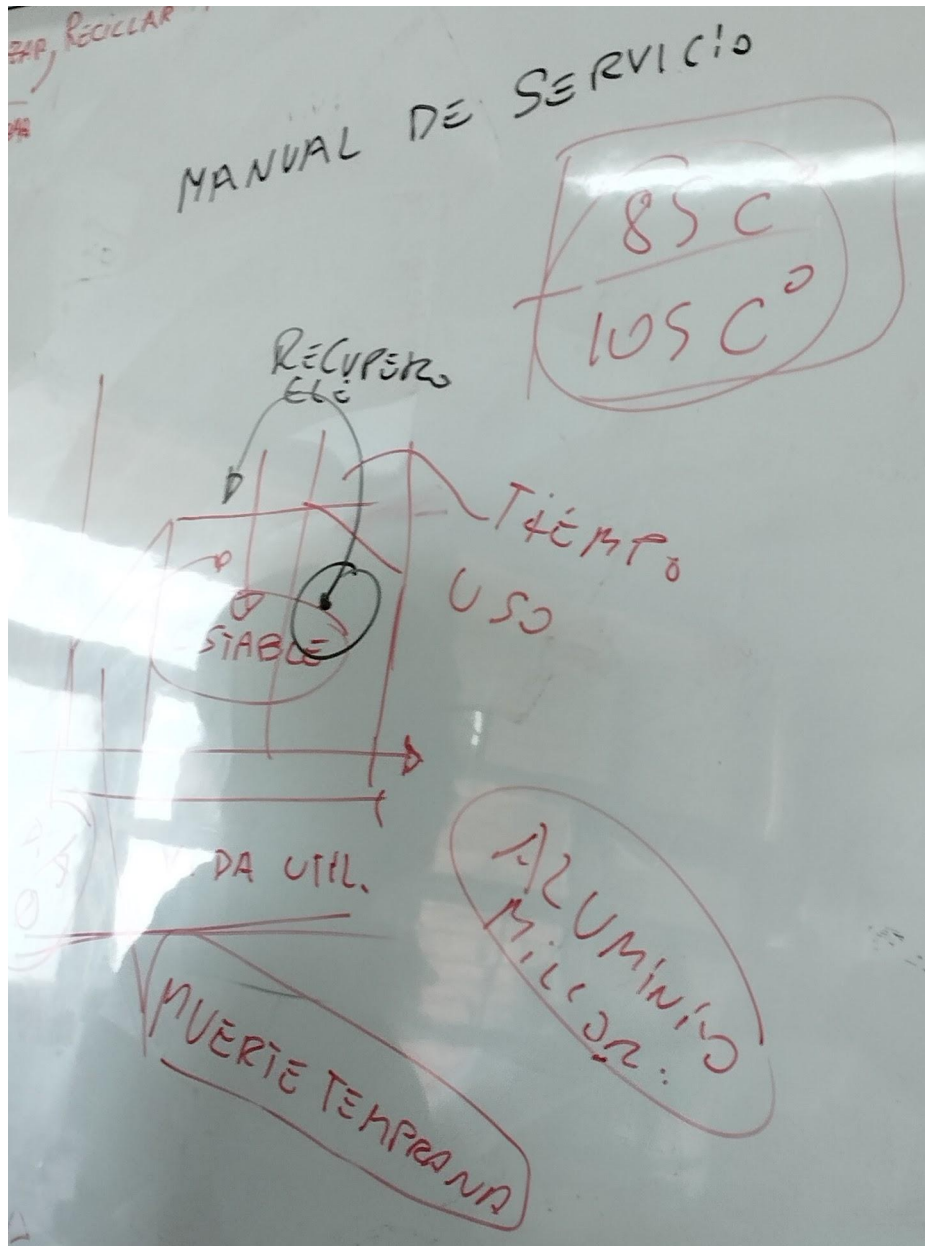 RECICLAR
MANUAL DE SERVICIO
85 C
105 C°
RECUPERO
TIEMPO
USO
STABLE
DA UTIL.
ALUMINIO
MUERTE TEMPRANA